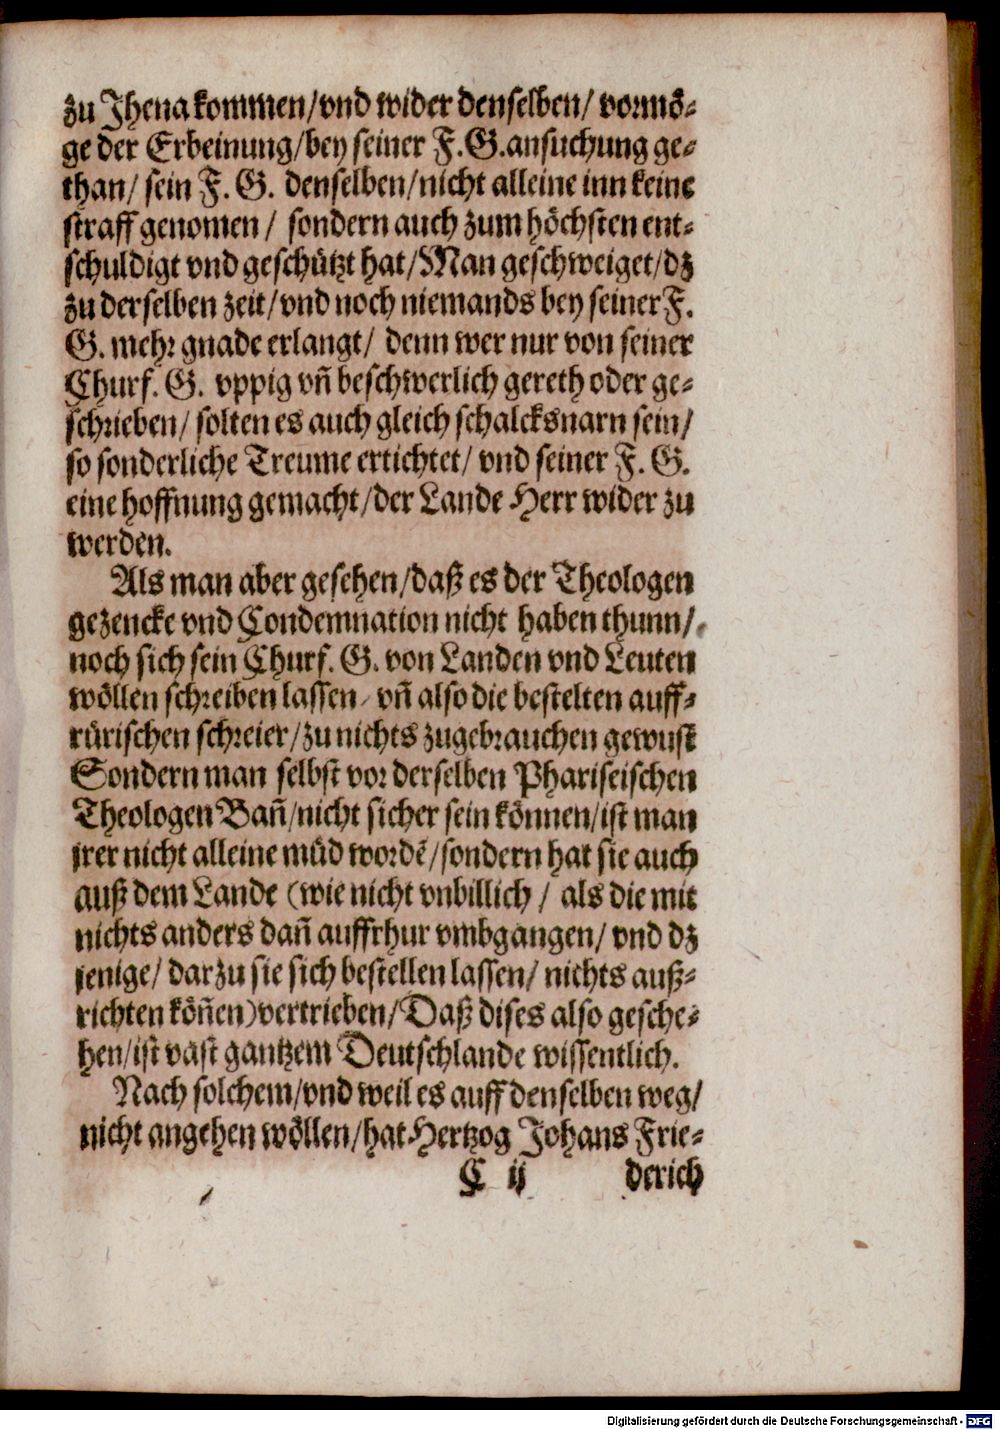 zu Jhena kommen/vnd wider denselben/ vormö⸗
ge der Erbeinung/bey seiner F.G.ansuchung ge⸗
than/ sein F. G. denselben/nicht alleine inn keine
straff genomen/ sondern auch zum höchsten ent⸗
schuldigt vnd geschützt hat/Man geschweiget/dz
zu derselben zeit/vnd noch niemands bey seiner F.
G. mehr gnade erlangt/ denn wer nur von seiner
Churf. G. vppig vñ beschwerlich gereth oder ge⸗
schrieben/ solten es auch gleich schalcksnarn sein/
so sonderliche Treume ertichtet/ vnd seiner F. G.
eine hoffnung gemacht/der Lande Herr wider zu
werden.
Als man aber gesehen/daß es der Theologen
gezencke vnd Condemnation nicht haben thunn/
noch sich sein Churf. G. von Landen vnd Leuten
wöllen schreiben lassen/ vñ also die bestelten auff⸗
rürischen schreier/zu nichts zugebrauchen gewust
Sondern man selbst vor derselben Phariseischen
Theologen Bañ/nicht sicher sein können/ist man
jrer nicht alleine müd wordē/sondern hat sie auch
auß dem Lande (wie nicht vnbillich/ als die mit
nichts anders dañ auffrhur vmbgangen/ vnd dz
jenige/ darzu sie sich bestellen lassen/ nichts auß⸗
richten köñen) vertrieben/Daß dises also gesche⸗
hen/ist vast gantzem Deutschlande wissentlich.
Nach solchem/vnd weil es auff denselben weg/
nicht angehen wöllen/hat Hertzog Johans Frie⸗
C ij derich
Digitalisierung gefördert durch die Deutsche Forschungsgemeinschaft - DFG